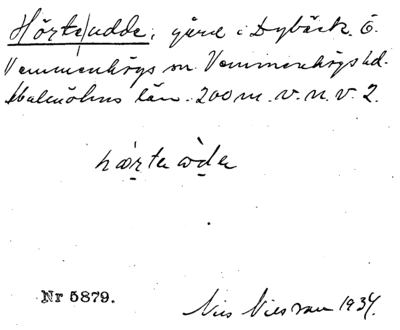 Hörte/udde, gård i Dybäck. Ö.
Vemmenhögs sn. Vemmenhögs hd.
Malmöhus län. 200 m. v. n. v. 2.
hȧrte ȧ̀de
Nr 5879.
Nils Nilsson 1934.